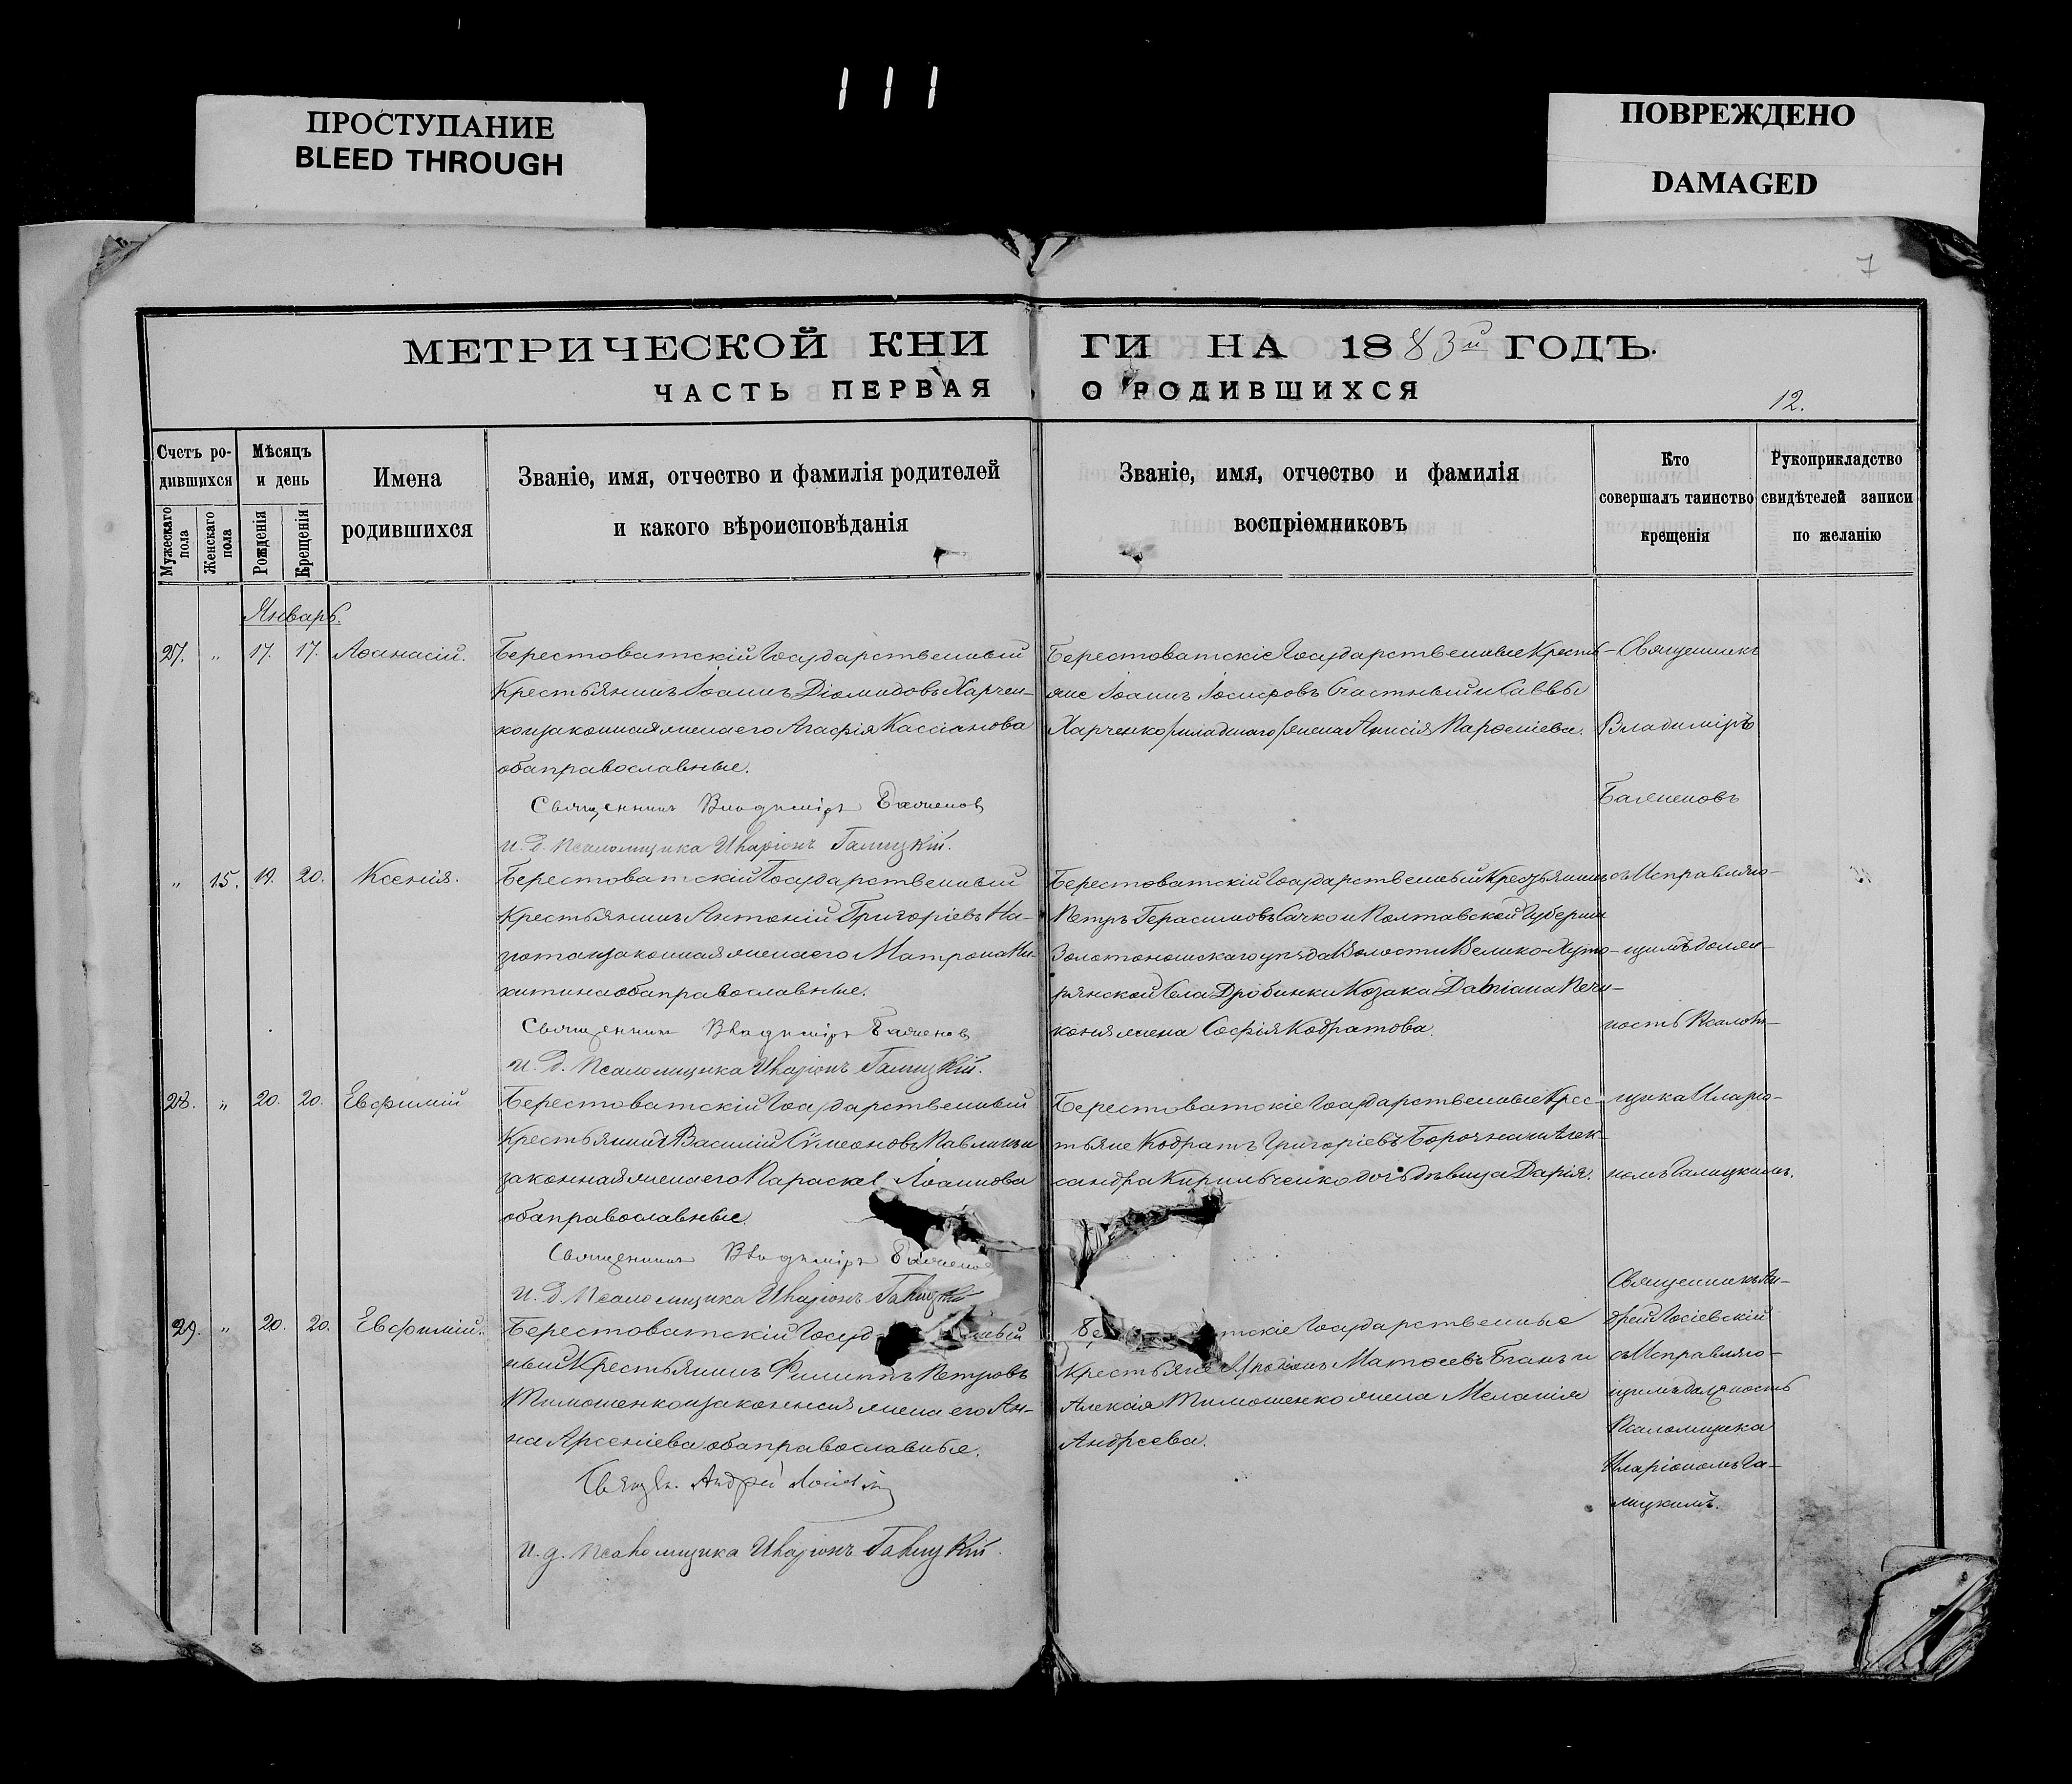 111
ПРОСТУПАНИЕ
BLEED THROUGH
ПОВРЕЖДЕНО
DAMAGED
7
МЕТРИЧЕСКОЙ КНИГИ НА 1883й ГОДЪ.
ЧАСТЬ ПЕРВАЯ О РОДИВШИХСЯ
12.
Счетъ ро-
дившихся
Мужескаго пола
Женскаго пола
Мѣсяцъ
и день
Рожденія
Крещенія
Имена
родившихся
Званіе, имя, отчество и фамилія родителей
и какого вѣроисповѣданія
Званіе, имя, отчество и фамилія
воспріемниковъ
Кто
совершалъ таинство
крещенія
Рукоприкладство
свидѣтелей записи
по желанію
Январь.
27. " 17. 17. Аѳанасій.
Берестоватскій Государственный
Крестьянинъ Іоаннъ Діомидовъ Харчен-
ко и законная жена его Агафія Кассіанова
оба православные.
Священникъ Владиміръ Баженов
и. д. Псаломщика Иларіонъ Галицкій.
Берестоватскіе Государственные Кресть-
яне Іоаннъ Іосифовъ Счастный и Саввы
Харченко /младшаго/ жена Анисія Парѳеніева.
Священникъ
Владиміръ
Баженовъ
" 15. 19. 20. Ксенія.
Берестоватскій Государственный
Крестьянинъ Антоній Григоріевъ На-
и законная жена его Матрона Ни-
китина оба православные.
Священник Владиміръ Баженов
и. д. Псаломщика Иларіонъ Галицкій.
Берестоватскій Государственный Крестьянинъ
Петръ Герасимовъ Сачко и Полтавской Губерніи
Золотоношскаго уѣзда Волости Велико-Хуто-
рянской Села Дробинки Козака Даміана
жена Софія Кодратова.
съ Исправляю-
щимъ долж-
ность Псалом-
28. " 20. 20. Евфимій
Берестоватскій Государственный
Крестьянинъ Василій Сѵмеоновъ Павликъ и
законная жена его Параскев Іоаннова
оба православные.
Священникъ Владиміръ Баженов
и. д. Псаломщика Иларіонъ Галицкій
Берестоватскіе Государственные Крес-
тьяне Кодратъ Григоріевъ и Алек-
сандра Кирильченко дочь дѣвица Дарія.
щика Иларіо-
номъ Галицкимъ.
29. " 20. 20. Евфимій.
Берестоватскій Госуд ный
ный Крестьянинъ Филиппъ Петровъ
Тимошенко и законная жена его Ан-
на Арсеніева оба православные.
Священ. Андрей
и. д. Псаломщика Иларіонъ Галицкій.
Бе тскіе Государственные
Крестьяне Иродіонъ Матѳеевъ и
Алексія Тимошенко жена Меланія
Андреева.
Священникъ Ан-
дрей
съ Исправляю-
щимъ должность
Псаломщика
Иларіономъ Га-
лицкимъ.